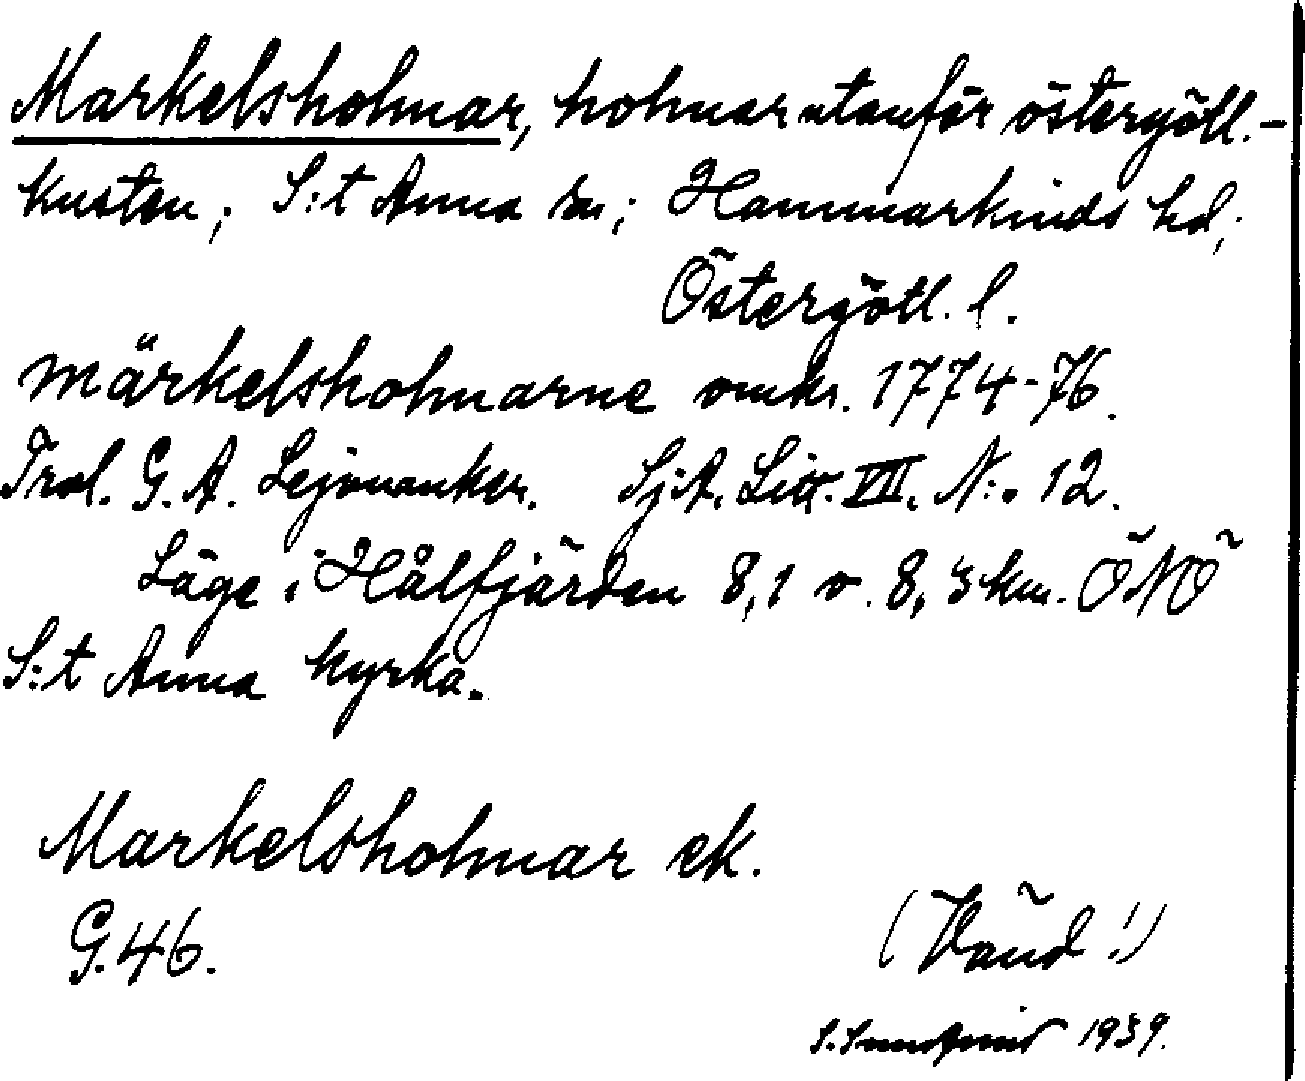 Markelsholmar, holmar utanför östergötl.-
kusten; S:t Anna sn; Hammarkinds hd;
Östergötl. l.
märkelsholmarne omkr. 1774-76.
Trol. G. A. Lejonanker. Sj.A. Litt. VII. N:o 12.
Läge i Hålfjärden 8,1 o. 8,3 km. ÖNÖ
S:t Anna kyrka.
Markelsholmar ek.
G. 46.
(Vänd!)
S. Sundqvist 1939.